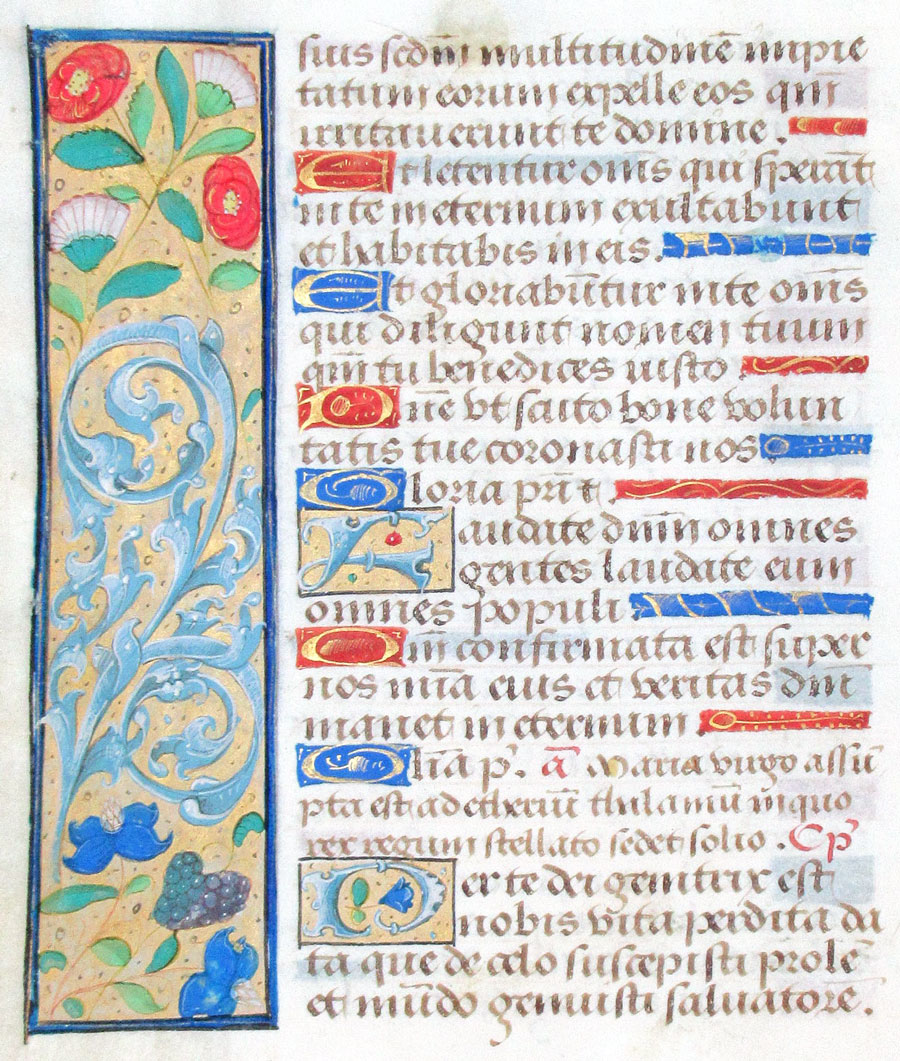 suis scdm̄ multitudinē impie
tatum eorum expelle eos qm̄
irritauerunt te domine .
Et letentur om̄s qui sperāt
in te in eternum exultabunt
et habitabis in eis.
Et gloriabūtur in te om̄s
qui diligunt nomen tuum
qm̄ tu benedices iusto
Dn̄e vt scuto bone volun
tatis tue coronasti nos
Gloria pr̄i t .
Laudate dnm̄ omnes
gentes laudate eum
omnes populi
Qm̄ confirmata est super
nos mīa eius et veritas dnī
manet in eternum
Glīa p̄. ā Maria virgo assū
pta est ad etheriū thalamū in quo
rex regum stellato sedet solio . Cp̄
Per te dei genitrix est
nobis vita perdita da
ta que de celo suscepisti prolē
et mūdo genuisti saluatorē.